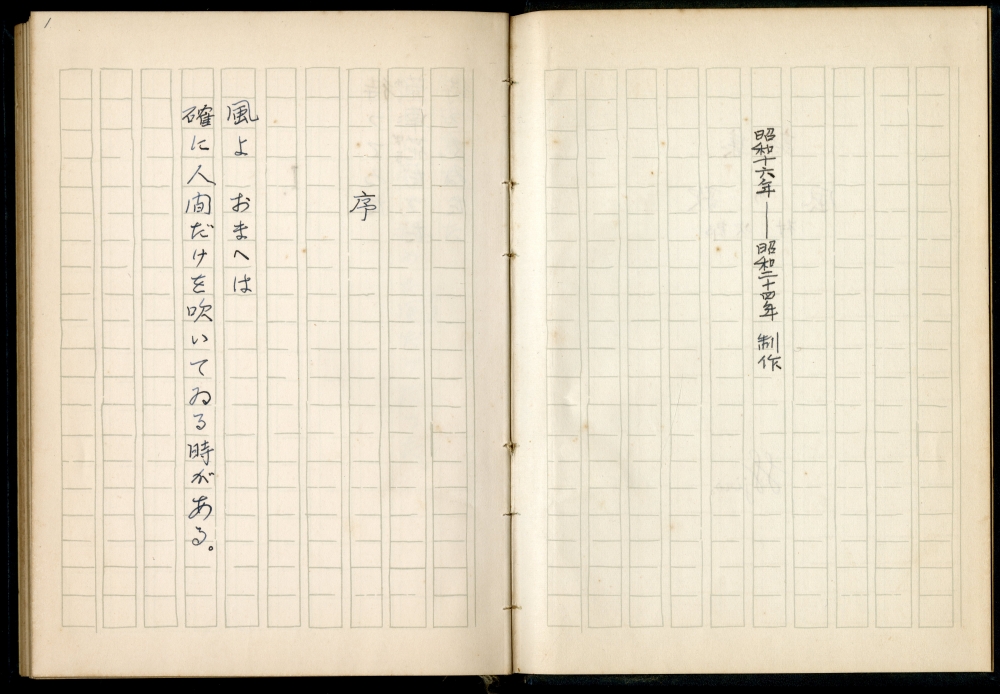 昭和十六年――昭和二十四年 制作
序
風よ おまへは
確に人間だけを吹いてゐる時がある。
1